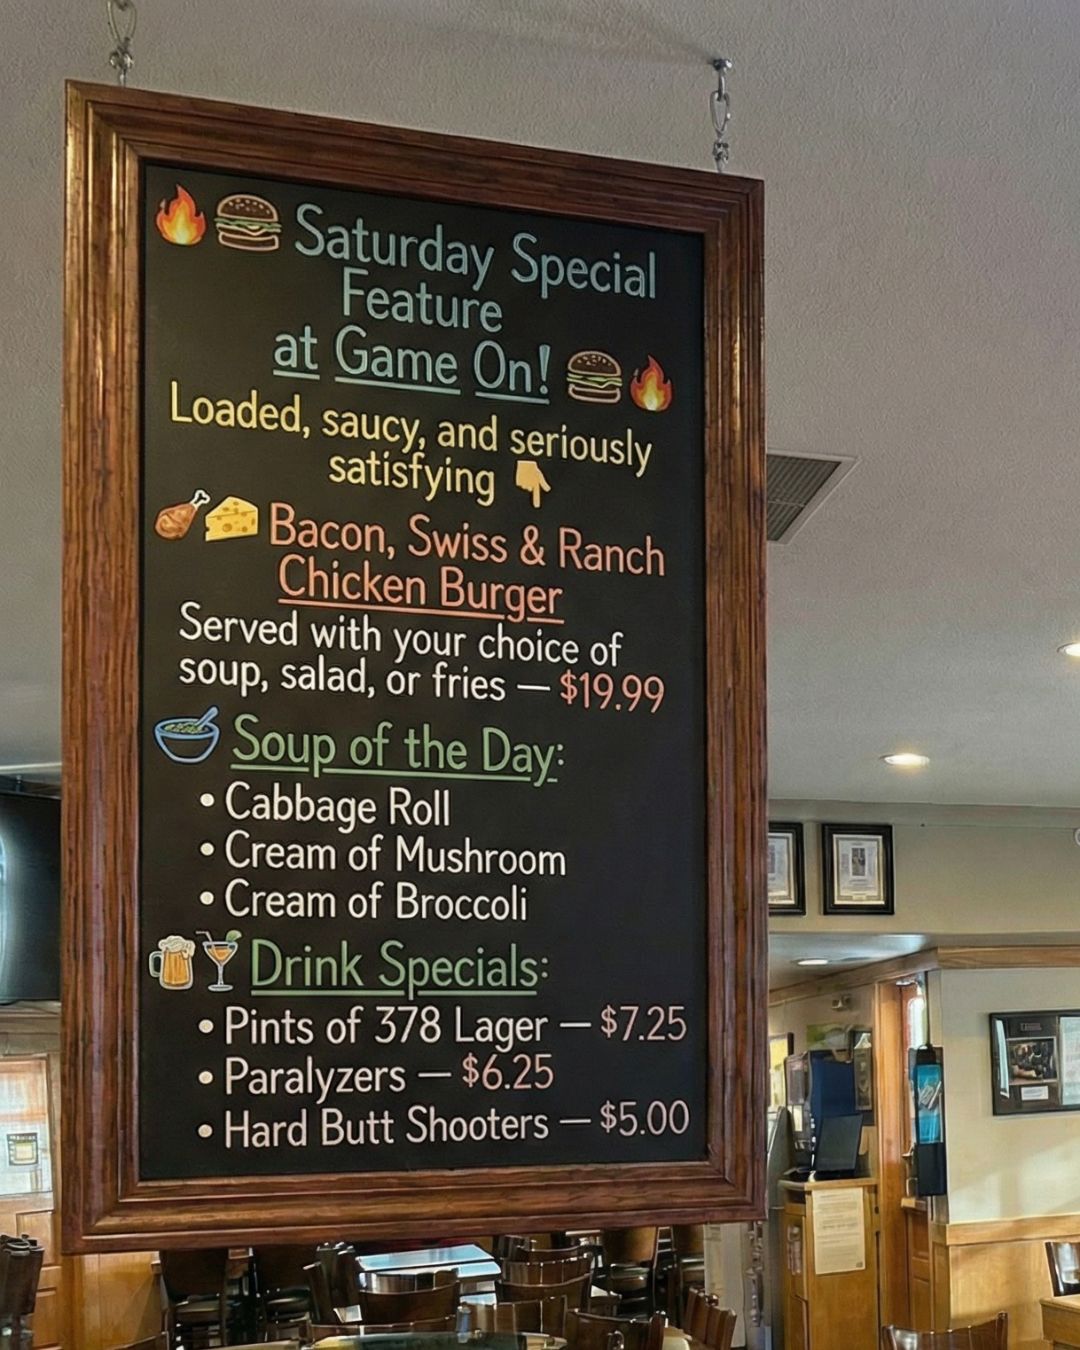 🔥🍔 Saturday Special
Feature
at Game On! 🍔🔥
Loaded, saucy, and seriously
satisfying 👇
🍗🧀 Bacon, Swiss & Ranch
Chicken Burger
Served with your choice of
soup, salad, or fries — $19.99
🥣 Soup of the Day:
• Cabbage Roll
• Cream of Mushroom
• Cream of Broccoli
🍺🍹 Drink Specials:
• Pints of 378 Lager — $7.25
• Paralyzers — $6.25
• Hard Butt Shooters — $5.00